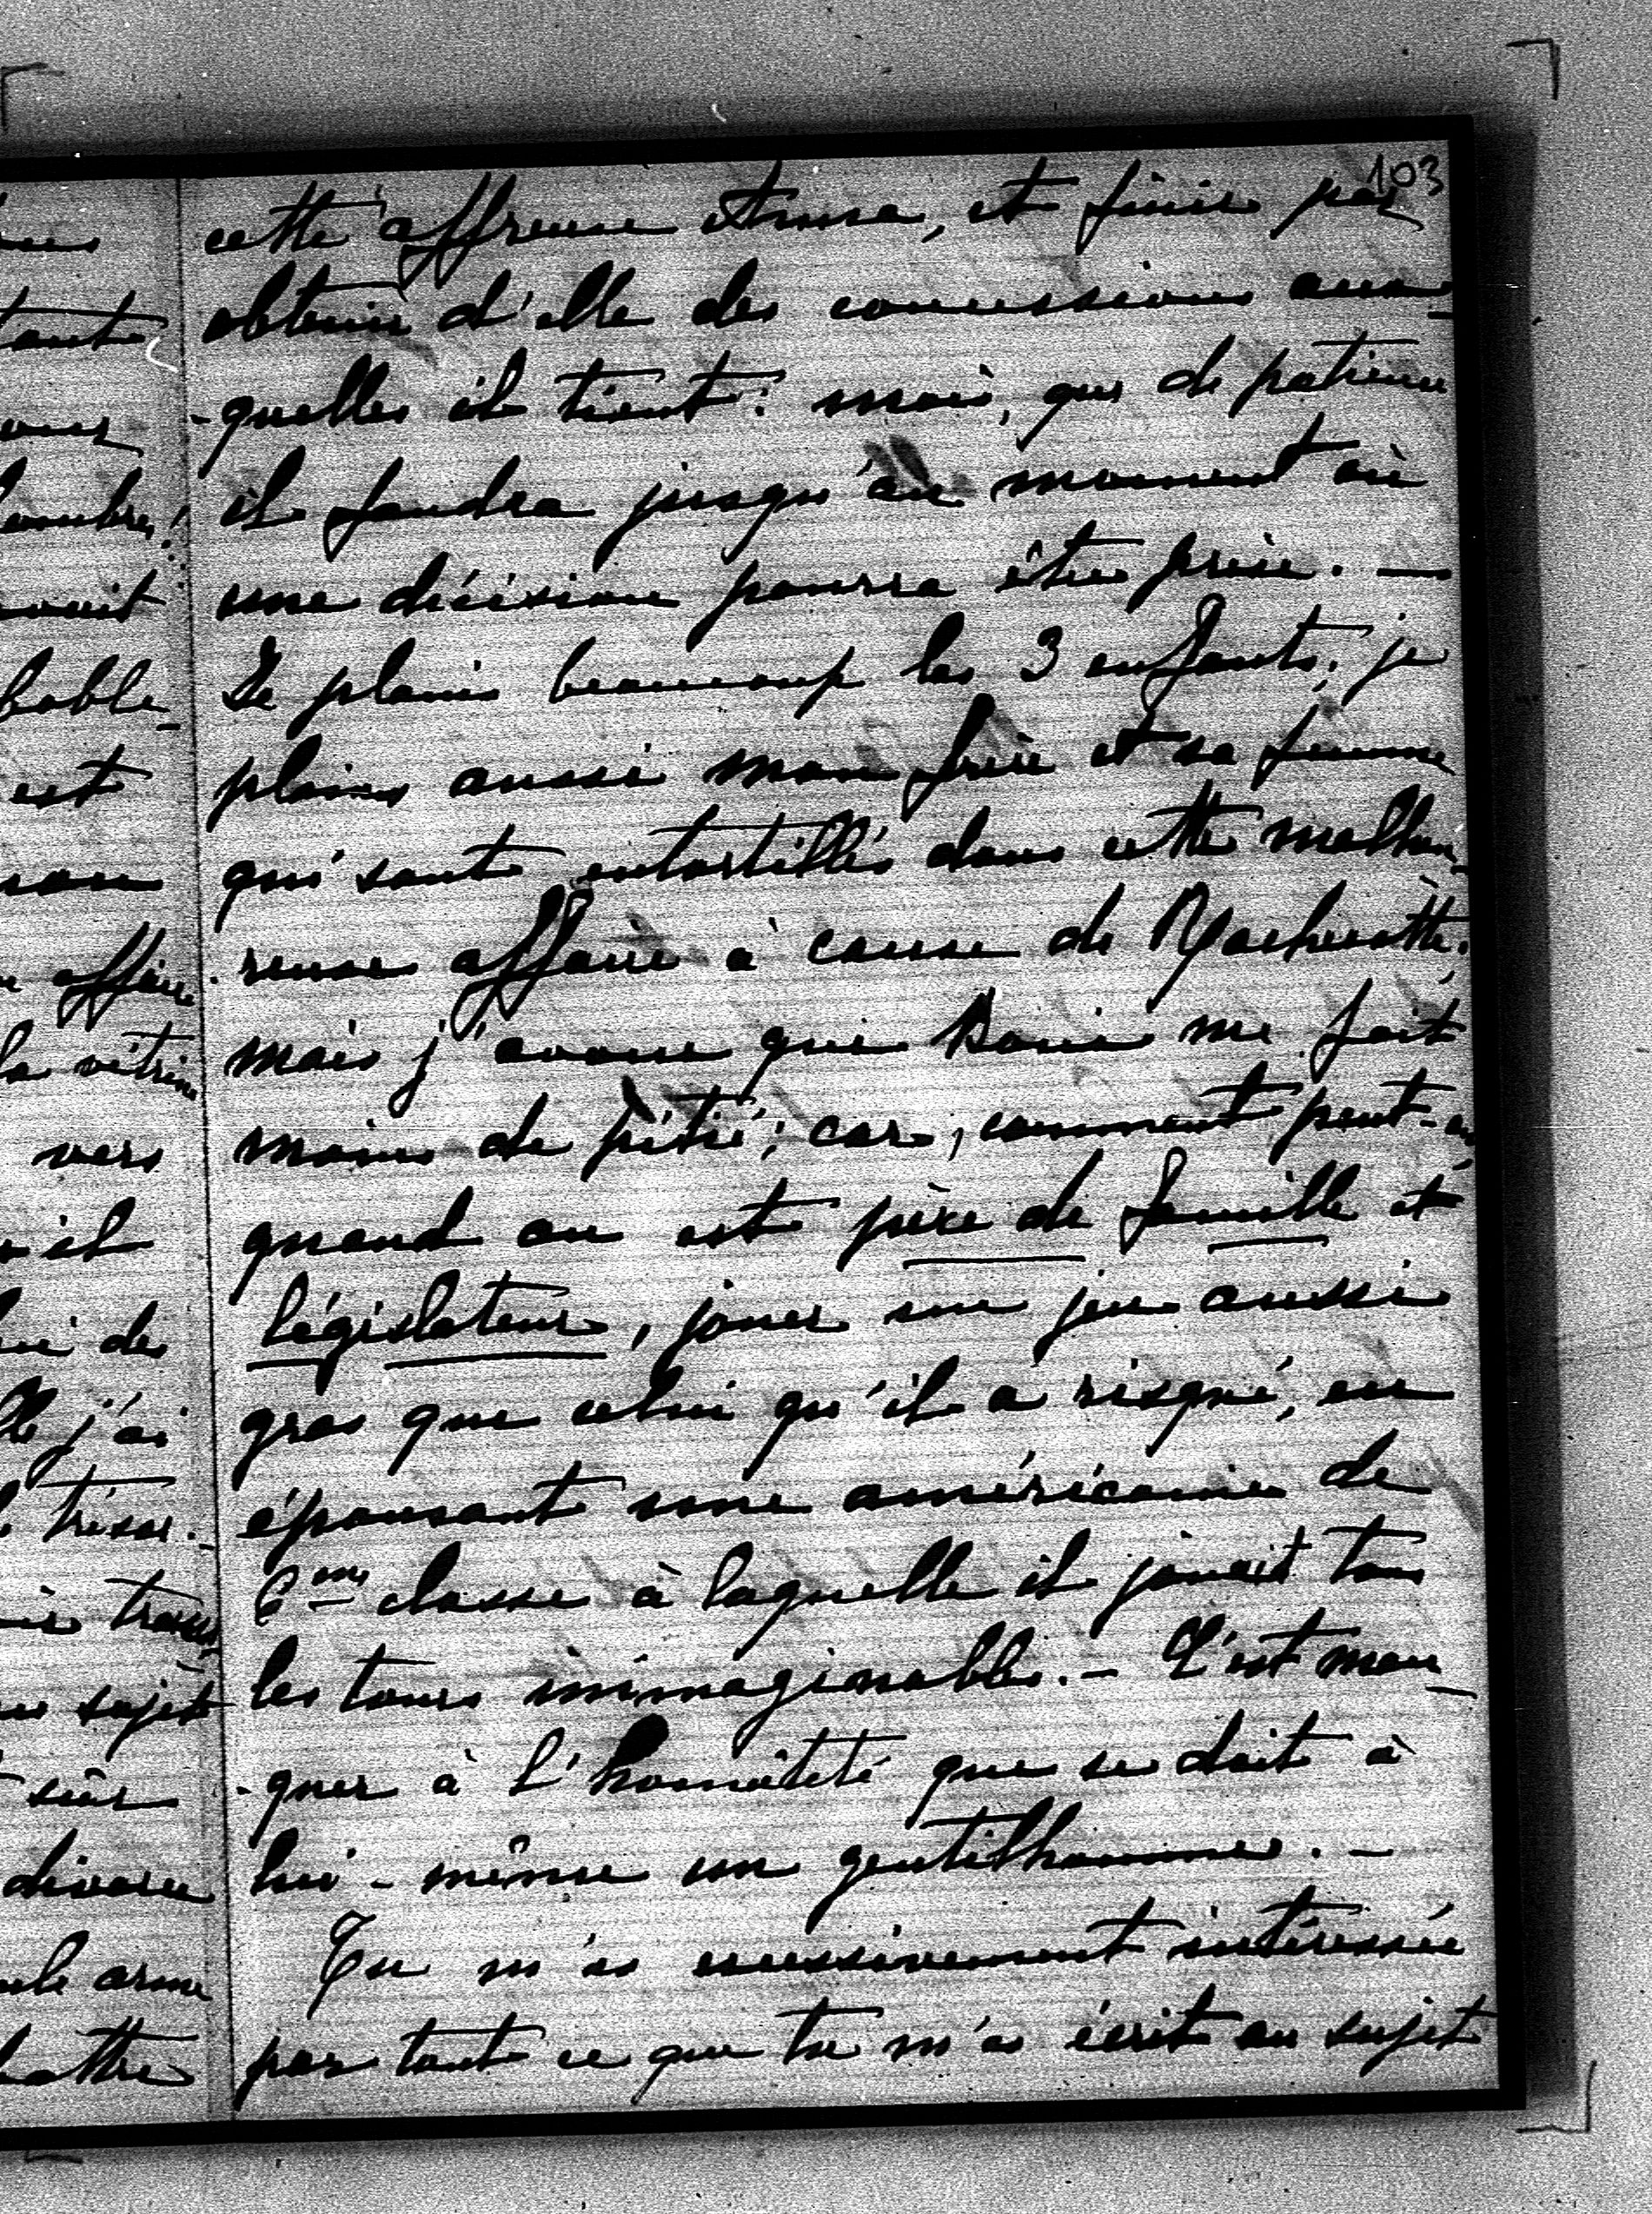 103
cette affreuse Anna, et finir par
obtenir d'elle des concessions aux-
-quelles il tient: mais, que de patience
il faudra jusqu'au moment où
une décision pourra être prise. —
Je plains beaucoup les 3 enfants; je
plains aussi mon frère et sa femme
qui sont entortillés dans cette malheu-
reuse affaire à cause de
mais j'avoue que Boni me fait
moins de pitié; car, comment peut-on
quand on est père de famille et
législateur, jouer un jeu aussi
gros que celui qu'il a risqué, en
épousant une américaine de
6me classe à laquelle il jouait tous
les tours immaginables. — C'est man-
-quer à l'honnêteté que se doit à
lui-même un gentilhomme. —
Tu m'as excessivement intéressée
par tout ce que tu m'as écrit au sujet
tante
est
affaire
la vitrine
vers
il
de
j'ai
trésor.
sujet
sûr
divorce
arme